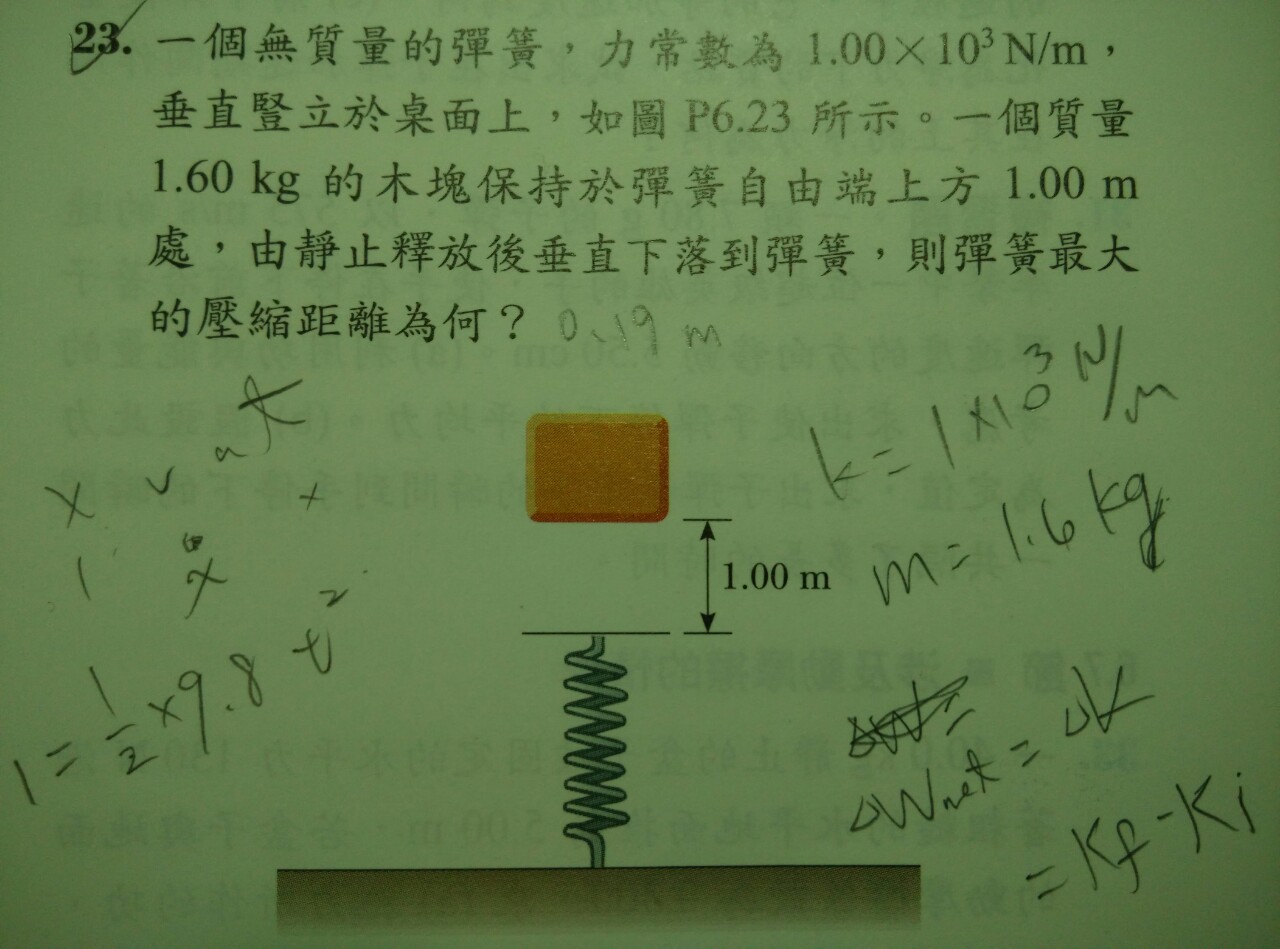 23. 一個無質量的彈簧，力常數為 1.00×10³ N/m，
垂直豎立於桌面上，如圖 P6.23 所示。一個質量
1.60 kg 的木塊保持於彈簧自由端上方 1.00 m
處，由靜止釋放後垂直下落到彈簧，則彈簧最大
的壓縮距離為何？ 0.19 m
k = 1×10³ N/m
x v a t
1.00 m
m = 1.6 kg
1 = 1/2 × 9.8 t²
ΔWnet = ΔK
= Kf - Ki